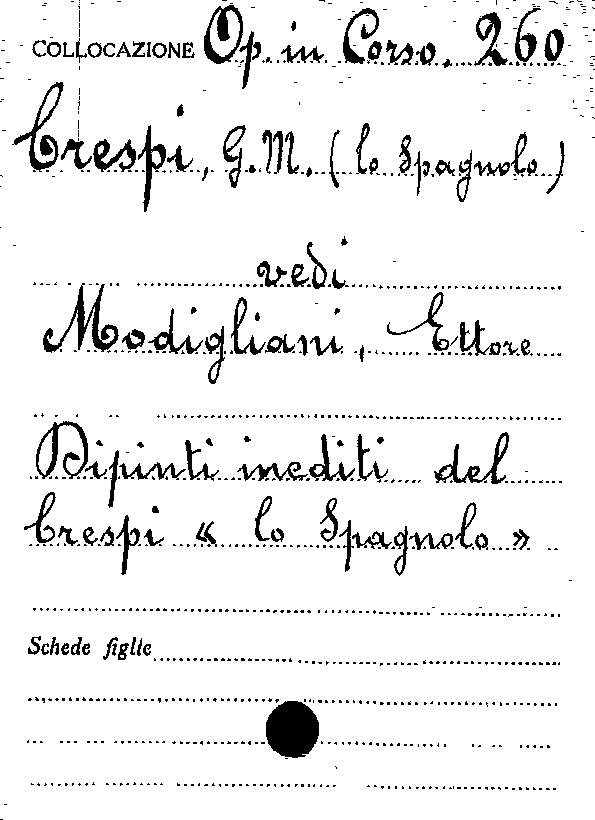 COLLOCAZIONE Op. in Corso. 260
Crespi, G. M. (lo Spagnolo)
vedi
Modigliani, Ettore
Dipinti inediti del
Crespi « lo Spagnolo »
Schede figlie